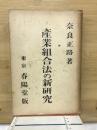 奈良正路著
産業組合法の新研究
東京 春陽堂版